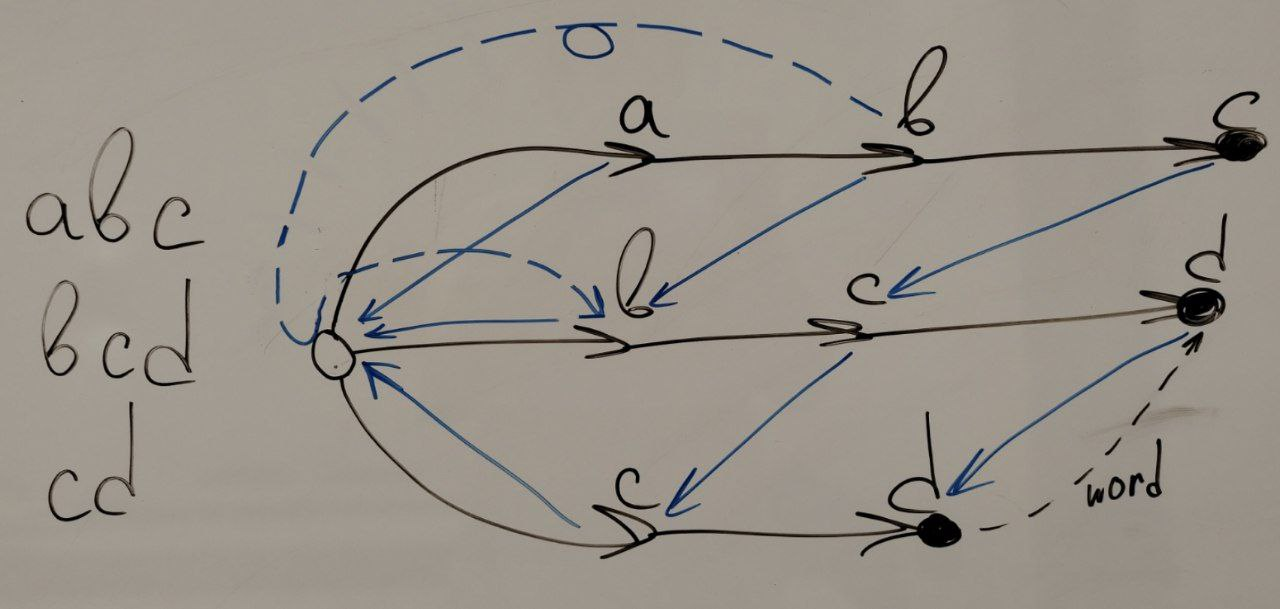 abc
bcd
cd
a b c
b c d
c d
word